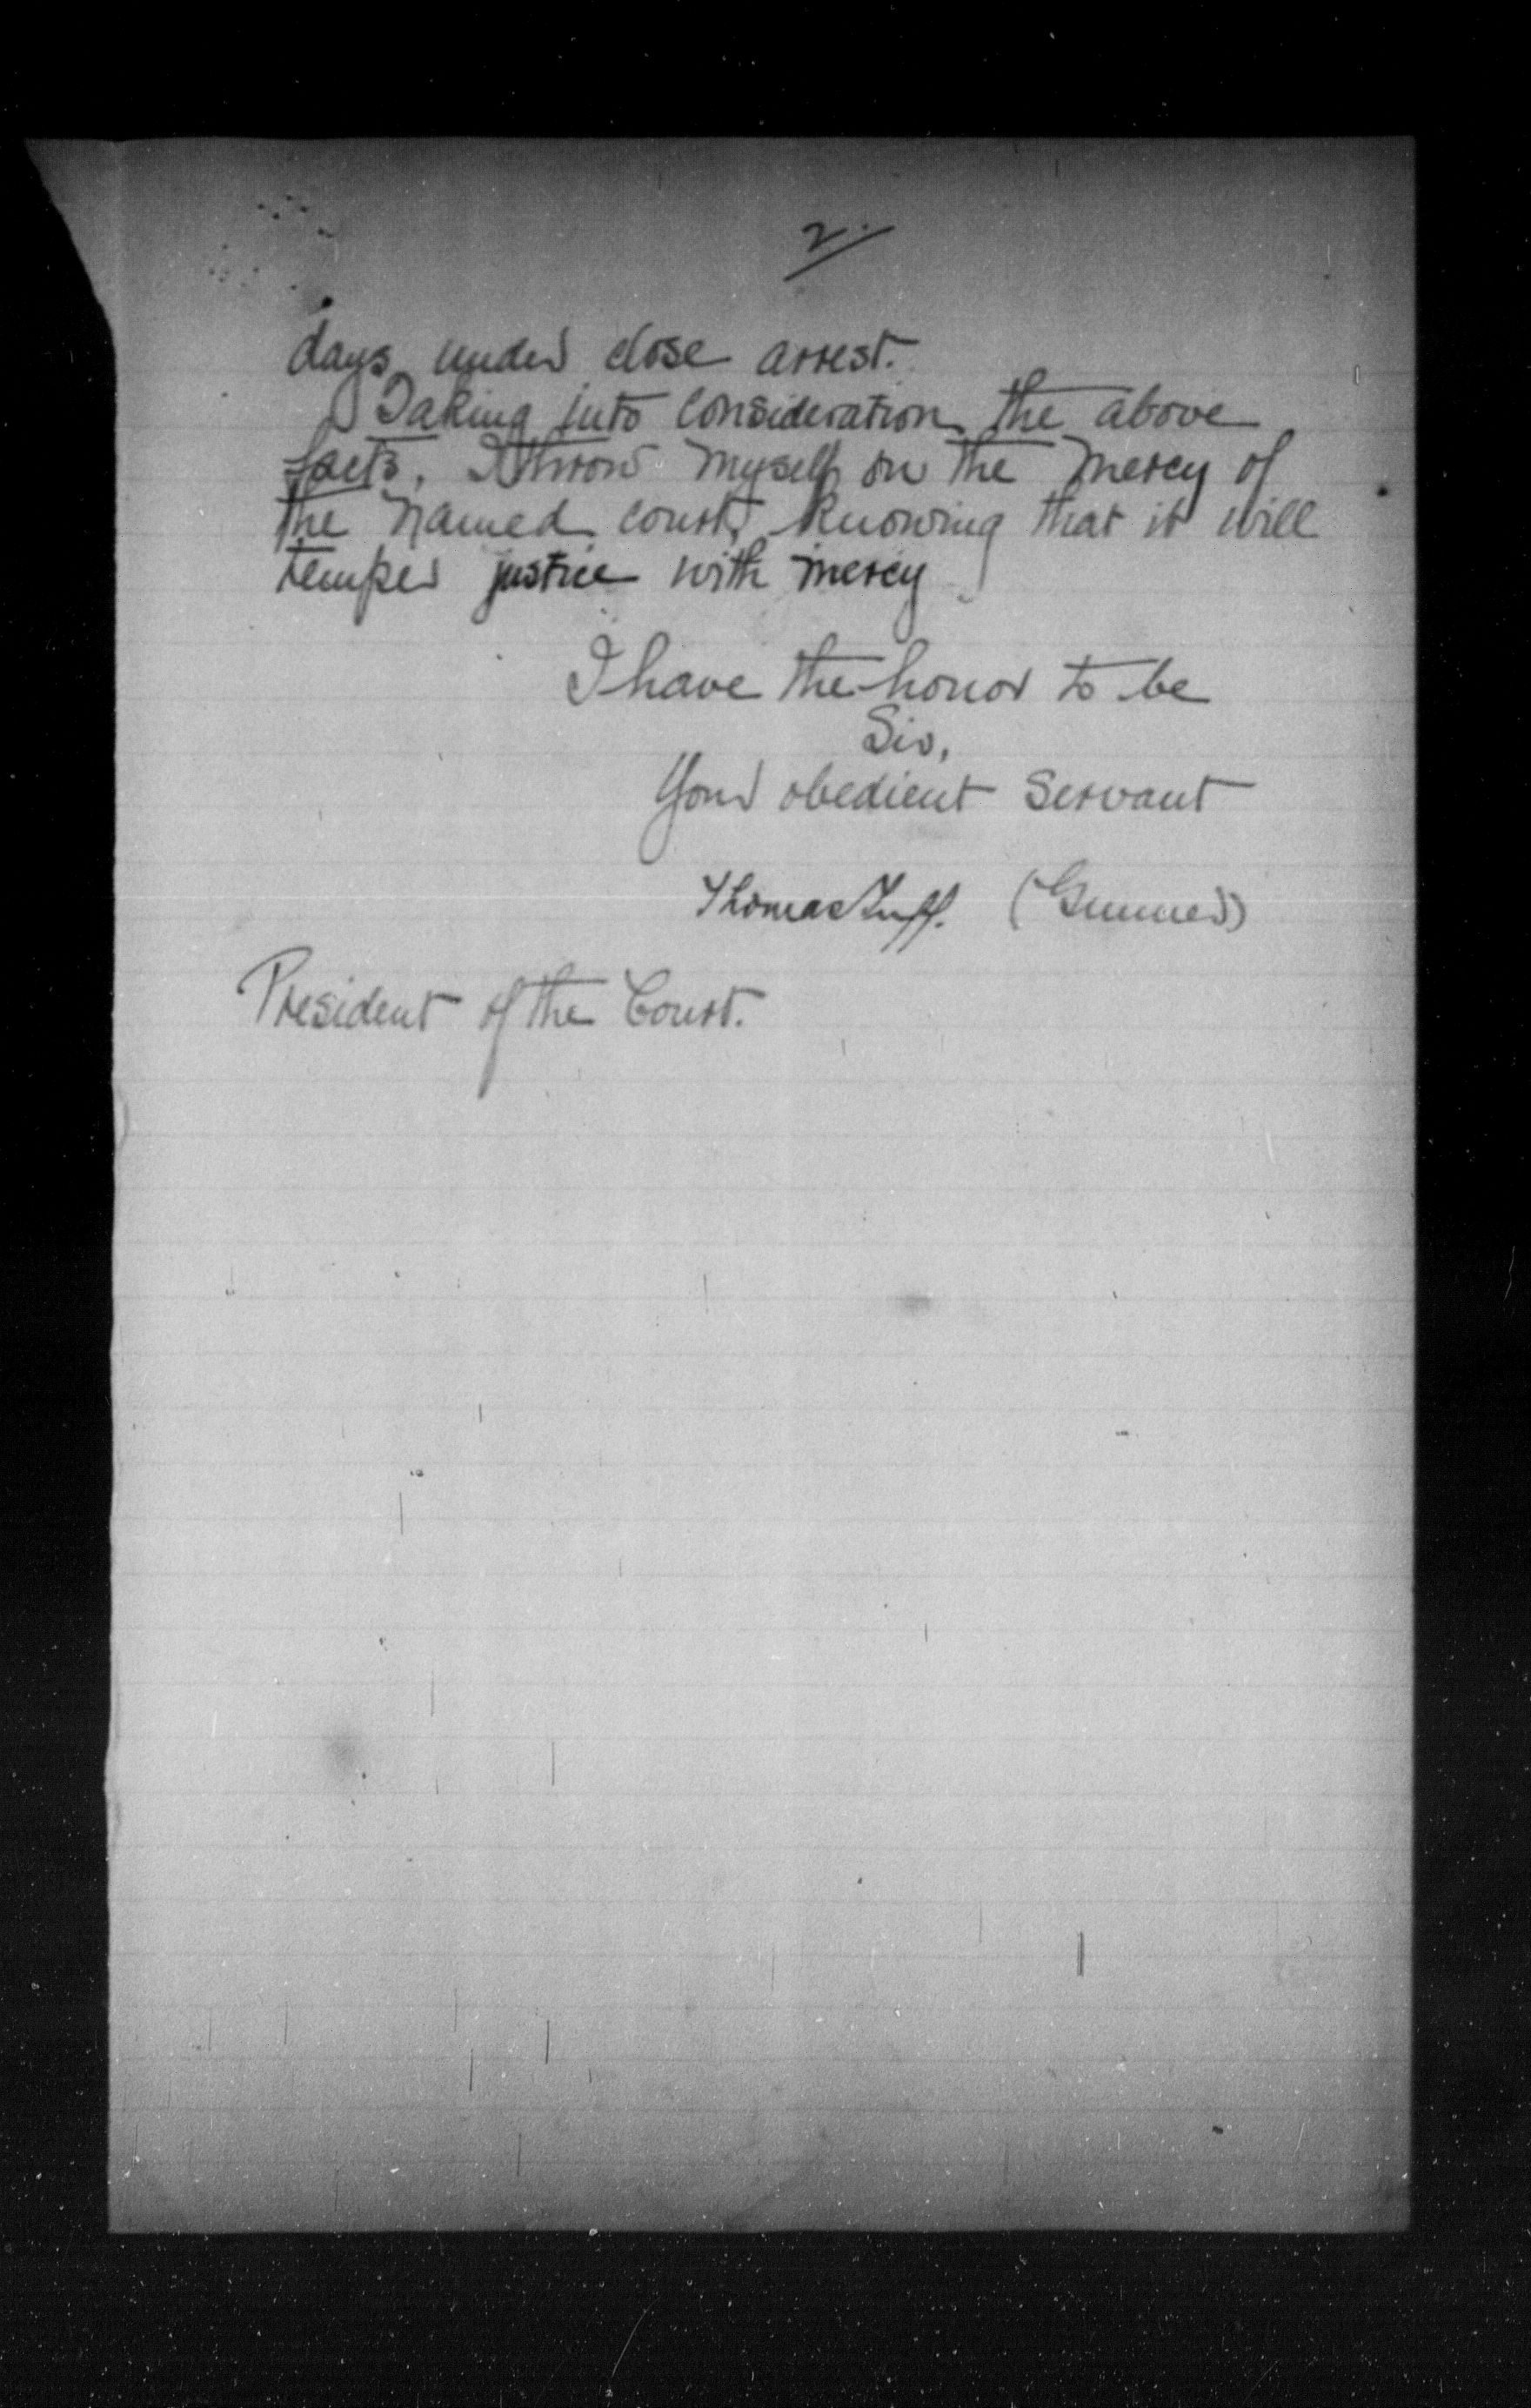 2.
days under close arrest.
Taking into consideration the above
facts, I throw myself on the mercy of
the named court, knowing that it will
temper justice with mercy
I have the honor to be
Sir,
Your obedient servant
Thomas Tuff. (Gunner)
President of the Court.